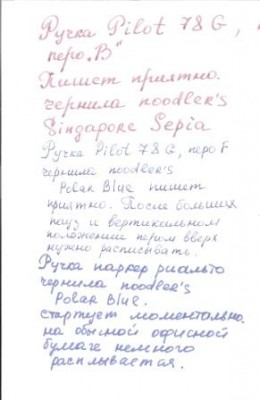 Ручка Pilot 78 G,
перо „В"
Пишет приятно.
чернила noodler's
Singapore Sepia
Ручка Pilot 78 G, перо F
чернила noodler's
Polar Blue пишет
приятно. После больших
пауз и вертикальном
положении пером вверх
нужно расписывать.
Ручка паркер риальто
чернила noodler's
Polar Blue.
стартует моментально.
на обычной офисной
бумаге немного
расплывается.